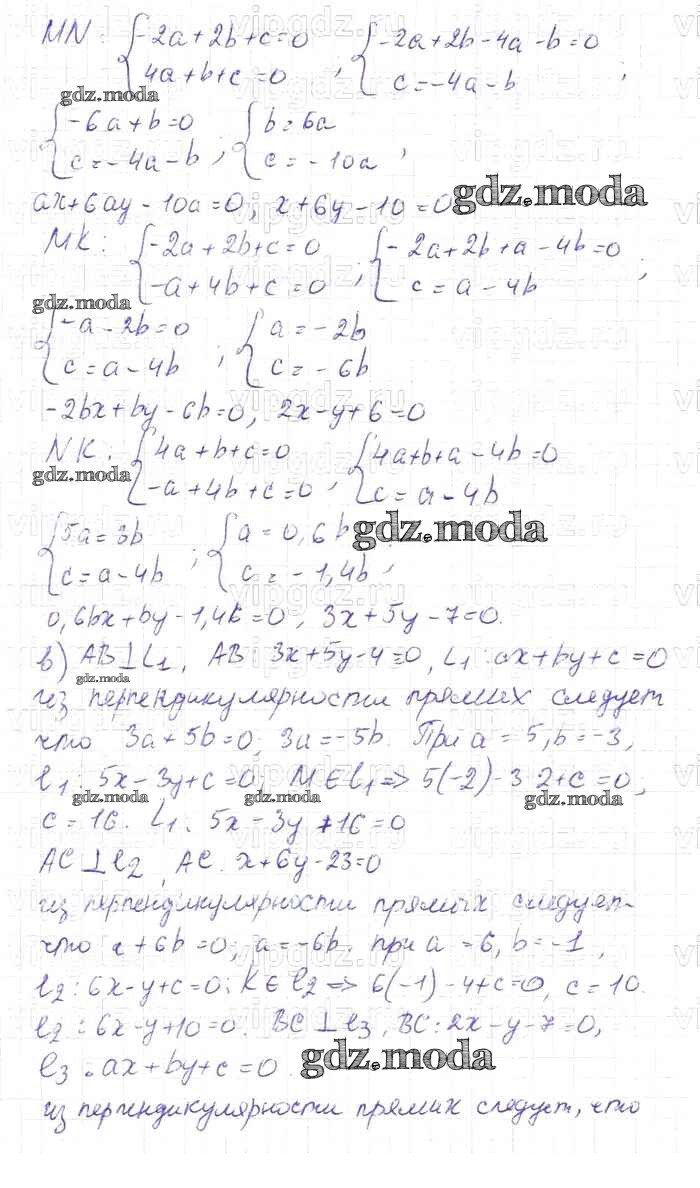 MN: {-2a+2b+c=0 {-2a+2b-4a-b=0
4a+b+c=0 , c=-4a-b ;
gdz.moda
{-6a+b=0 {b=6a
c=-4a-b ; c=-10a ,
ax+6ay-10a=0, x+6y-10=0 gdz.moda
MK: {-2a+2b+c=0 {-2a+2b+a-4b=0
-a+4b+c=0 ; c=a-4b ;
gdz.moda
{-a-2b=0 {a=-2b
c=a-4b ; c=-6b
-2bx+by-6b=0, 2x-y+6=0
NK: {4a+b+c=0 {4a+b+a-4b=0
gdz.moda
-a+4b+c=0 , c=a-4b
{5a=3b {a=0,6b gdz.moda
c=a-4b ; c=-1,4b,
0,6bx+by-1,4b=0, 3x+5y-7=0.
в) AB⊥L1, AB: 3x+5y-4=0, L1: ax+by+c=0
gdz.moda
из перпендикулярности прямых следует
что 3a+5b=0; 3a=-5b. При a=5, b=-3,
l1: 5x-3y+c=0; M∈l1 => 5(-2)-3·2+c=0;
gdz.moda gdz.moda gdz.moda
c=16. L1: 5x-3y+16=0
AC⊥l2, AC: x+6y-23=0
из перпендикулярности прямых следует
что a+6b=0; a=-6b. при a=6, b=-1,
l2: 6x-y+c=0; K∈l2 => 6(-1)-4+c=0, c=10.
l2: 6x-y+10=0. BC⊥l3, BC: 2x-y-7=0,
l3: ax+by+c=0. gdz.moda
из перпендикулярности прямих следует, что